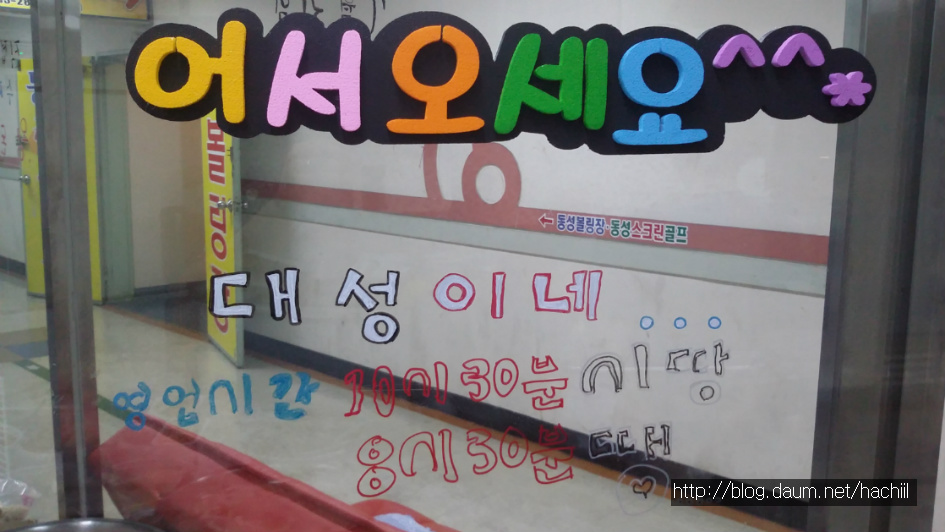 어서오세요^^*
←동성볼링장·동성스크린골프
대성이네...
영업시간 10시30분 시땅
8시30분 땡
http://blog.daum.net/hachill